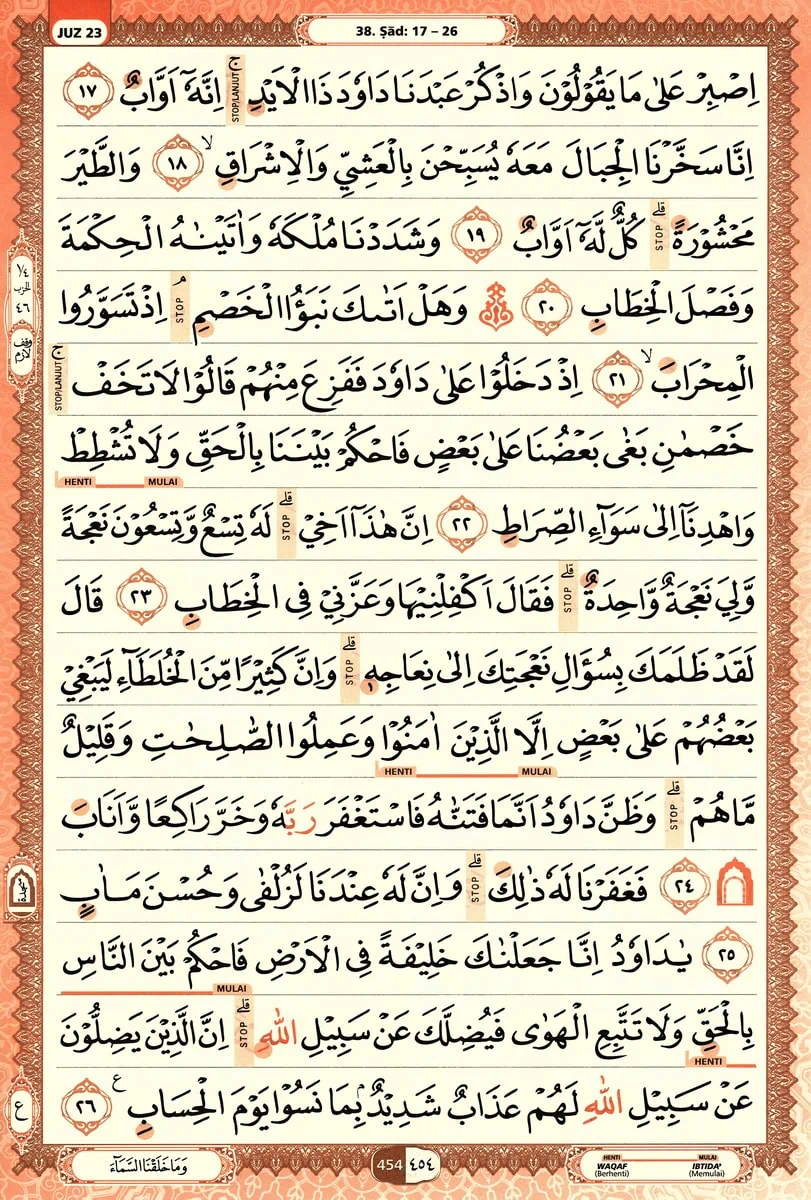 JUZ 23
38. Ṣād: 17 – 26
اِصْبِرْ عَلٰى مَا يَقُوْلُوْنَ وَاذْكُرْ عَبْدَنَا دَاوٗدَ ذَا الْاَيْدِۚ اِنَّهٗٓ اَوَّابٌ ١٧
STOP/LANJUT
اِنَّا سَخَّرْنَا الْجِبَالَ مَعَهٗ يُسَبِّحْنَ بِالْعَشِيِّ وَالْاِشْرَاقِۙ ١٨ وَالطَّيْرَ
مَحْشُوْرَةًۗ كُلٌّ لَّهٗٓ اَوَّابٌ ١٩ وَشَدَدْنَا مُلْكَهٗ وَاٰتَيْنٰهُ الْحِكْمَةَ
STOP
وَفَصْلَ الْخِطَابِ ٢٠ وَهَلْ اَتٰىكَ نَبَؤُا الْخَصْمِۘ اِذْ تَسَوَّرُوا
STOP
الْمِحْرَابَۙ ٢١ اِذْ دَخَلُوْا عَلٰى دَاوٗدَ فَفَزِعَ مِنْهُمْ قَالُوْا لَا تَخَفْۚ
STOP/LANJUT
خَصْمٰنِ بَغٰى بَعْضُنَا عَلٰى بَعْضٍ فَاحْكُمْ بَيْنَنَا بِالْحَقِّ وَلَا تُشْطِطْ
HENTI MULAI
وَاهْدِنَآ اِلٰى سَوَاۤءِ الصِّرَاطِ ٢٢ اِنَّ هٰذَآ اَخِيْۗ لَهٗ تِسْعٌ وَّتِسْعُوْنَ نَعْجَةً
STOP
وَّلِيَ نَعْجَةٌ وَّاحِدَةٌۗ فَقَالَ اَكْفِلْنِيْهَا وَعَزَّنِيْ فِى الْخِطَابِ ٢٣ قَالَ
STOP
لَقَدْ ظَلَمَكَ بِسُؤَالِ نَعْجَتِكَ اِلٰى نِعَاجِهٖۗ وَاِنَّ كَثِيْرًا مِّنَ الْخُلَطَاۤءِ لَيَبْغِيْ
STOP
بَعْضُهُمْ عَلٰى بَعْضٍ اِلَّا الَّذِيْنَ اٰمَنُوْا وَعَمِلُوا الصّٰلِحٰتِ وَقَلِيْلٌ
HENTI MULAI
مَّا هُمْۗ وَظَنَّ دَاوٗدُ اَنَّمَا فَتَنّٰهُ فَاسْتَغْفَرَ رَبَّهٗ وَخَرَّ رَاكِعًا وَّاَنَابَ
STOP
٢٤ فَغَفَرْنَا لَهٗ ذٰلِكَۗ وَاِنَّ لَهٗ عِنْدَنَا لَزُلْفٰى وَحُسْنَ مَاٰبٍ
STOP
٢٥ يٰدَاوٗدُ اِنَّا جَعَلْنٰكَ خَلِيْفَةً فِى الْاَرْضِ فَاحْكُمْ بَيْنَ النَّاسِ
MULAI
بِالْحَقِّ وَلَا تَتَّبِعِ الْهَوٰى فَيُضِلَّكَ عَنْ سَبِيْلِ اللّٰهِۗ اِنَّ الَّذِيْنَ يَضِلُّوْنَ
STOP
HENTI
عَنْ سَبِيْلِ اللّٰهِ لَهُمْ عَذَابٌ شَدِيْدٌۢ بِمَا نَسُوْا يَوْمَ الْحِسَابِ ࣖ ٢٦
¼
الحزب
٤٦
وقف لازم
سجدة
ع
وَمَا خَلَقْنَا السَّمَاۤءَ
454 ٤٥٤
HENTI MULAI
WAQAF IBTIDA'
(Berhenti) (Memulai)